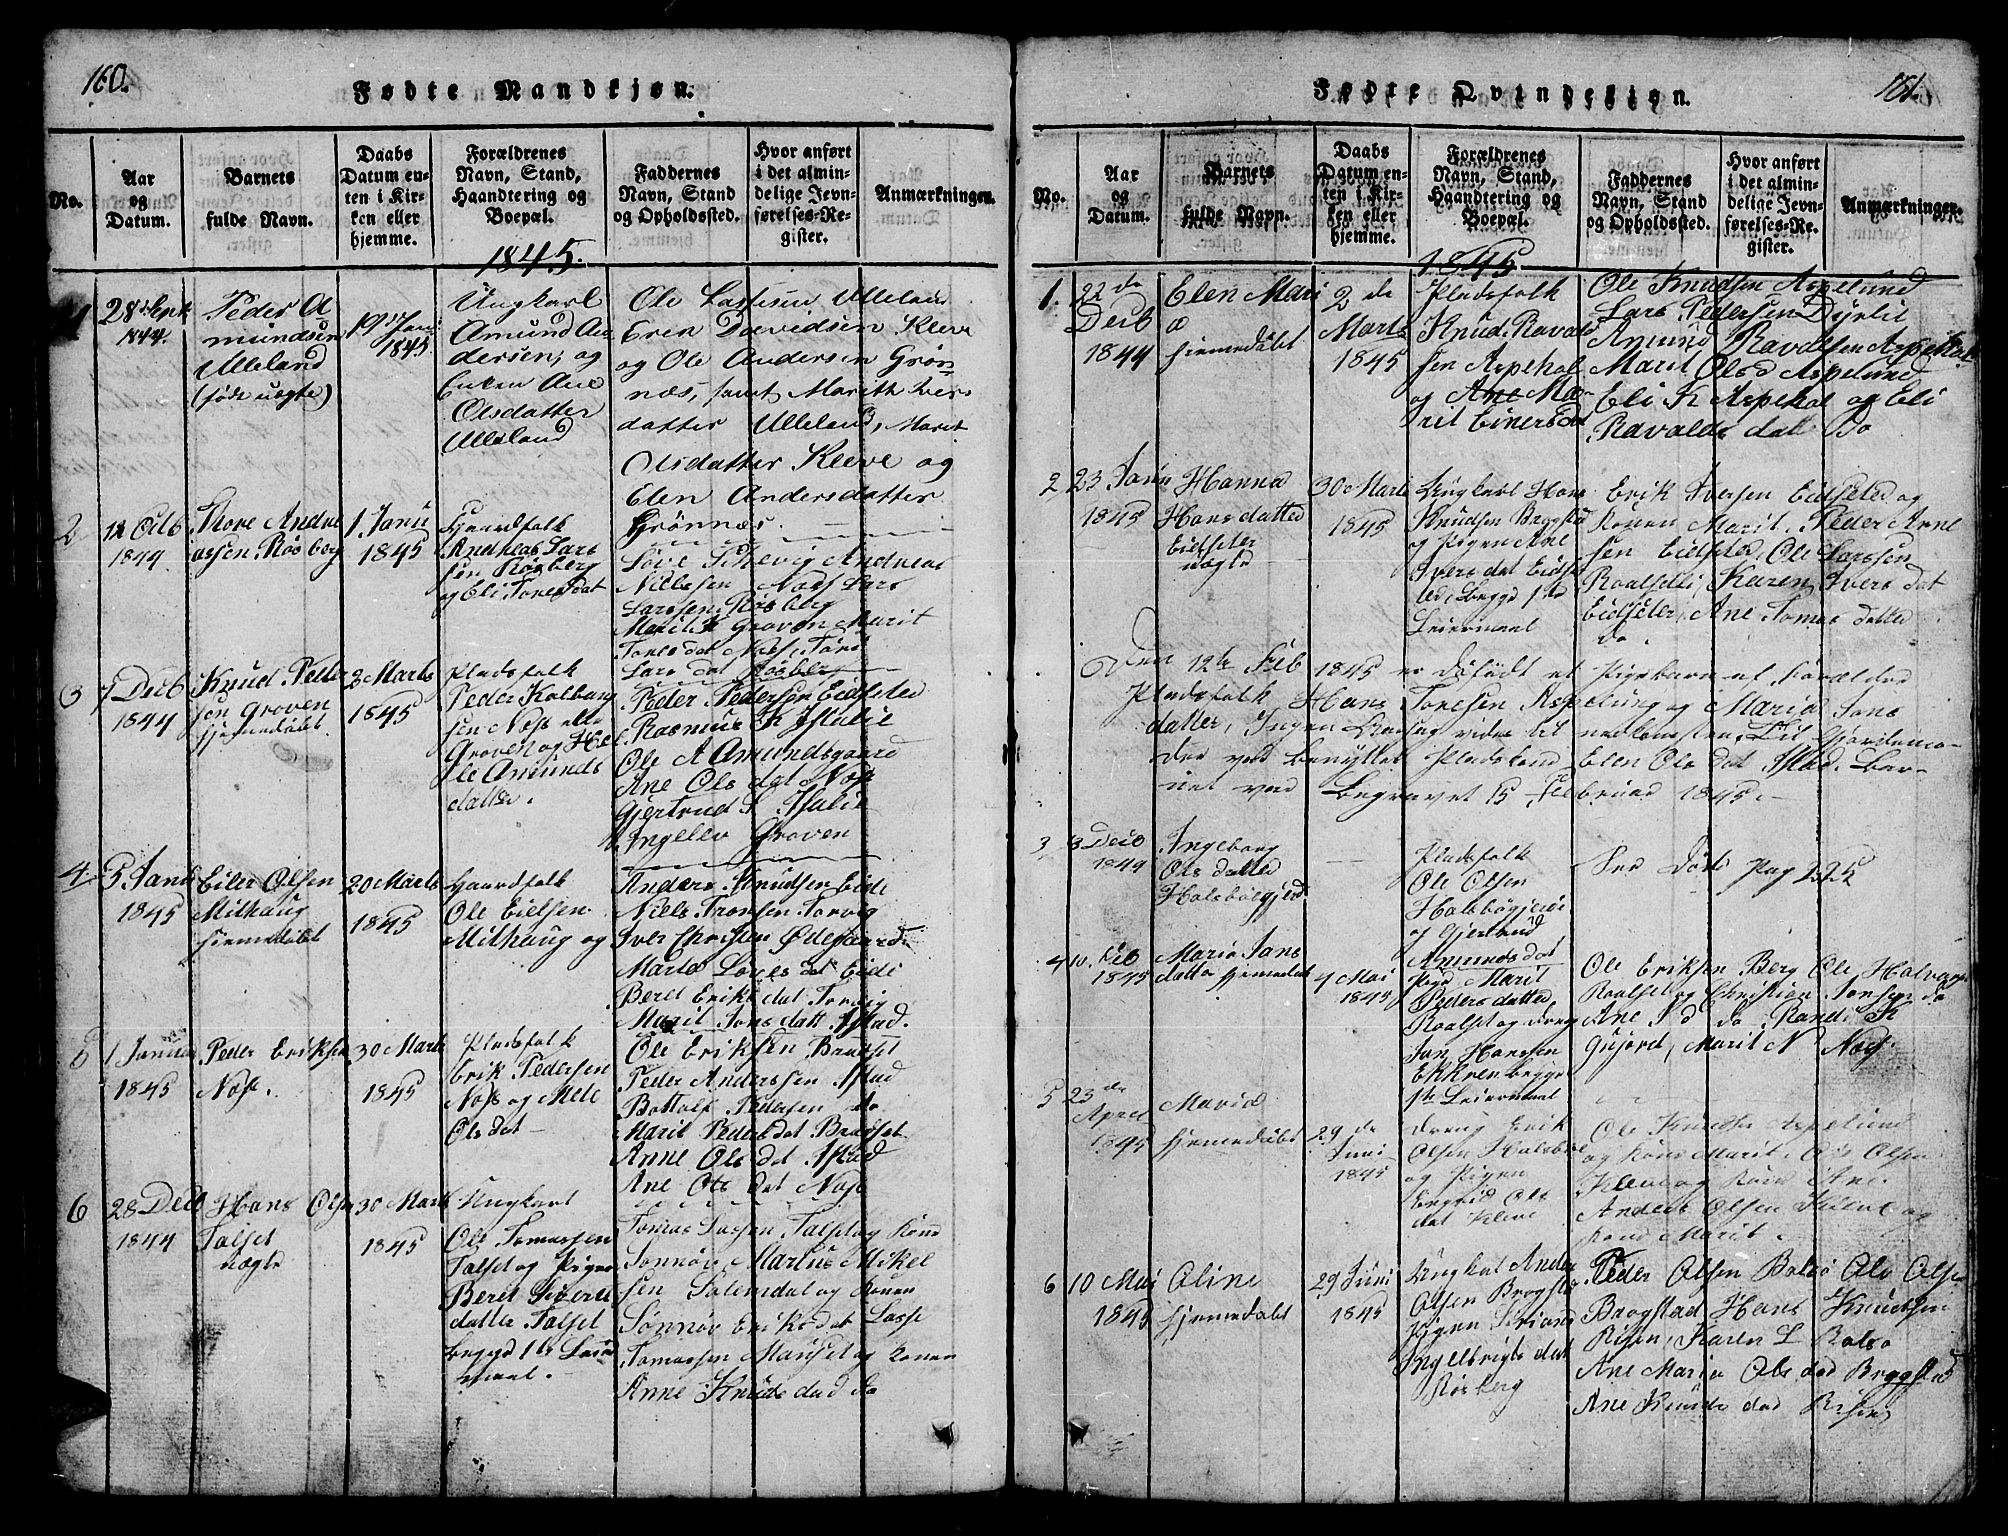 160.
Fødte Mandkjøn.
No.
Aar og Datum.
Barnets fulde Navn.
Daabs Datum enten i Kirken eller hjemme.
Forældrenes Navn, Stand, Haandtering og Boepæl.
Faddernes Navn, Stand og Opholdssted.
Hvor anført i det almindelige Jevnførelses-Register.
Anmærkninger.
1845.
1
28de Septr
1844.
Peder A
mundsen
Ulleland
(føde uægte)
19de Janr
1845
Ungkarl
Amund An
dersen, og
Enken Ane
Olsdatter
Ulleland
Ole Lassesen Ulleland
Erik Davidsen Kleve
og Ole Andersen Grøn
næs, samt Marith Iver
datter Ulleland, Marit
Olsdatter Kleve og
Elen Andersdatter
Grönnæs.
2
12 Octb
1844
Thore Andre
assen Rösberg
1 Janu
1845
Gaardfolk
Andreas Lars
sen Rösberg
og Eli Toresdat
Andreas
Nielssen Næss Lars
Larssen Rösberg
Marit K Groven Marit
Tores dat Næss
Lars dat Rösberg
3
7 Decb
1844
Knud Peder
sen Groven
hjemedöbt
2 Marts
1845
Pladsfolk
Peder Kolbang
sen Næss eller
Groven og Hel
le Amunds
datter.
Peder Pedersen Eidseter
Rasmus K Istalie
Ole A Amundsgaard
Ane Ols dat Næss
Gjertrud S Istalie
Ingellev Groven
4
5 Janu
1845
Eiler Olsen
Milhaug
hjemedöbt
20 Marts
1845
Gaardfolk
Ole Eielsen
Milhaug og
Anders Knudsen Eide
Niels Tronsen Torvig
Iver Christen Ödegaard
Marte Loves dat Eide
Beret Eriks dat Torvig
Marit Jons datt Istad.
5
1 Januar
1845
Peder Eriksen
Næss.
30 Marts
1845
Pladsfolk
Erik Pedersen
Næss og Mele
Ols dat
Ole Eriksen Bradset
Peder Anderssen Istad
Bottolf Pedersen do
Marit Peders dat Bradset
Anne Ols dat Istad
Ane Ols dat Næss
6
28 Decb
1844
Hans Olsen
Talset
uægte
30 Marts
1845
Ungkarl
Ole Tomassen
Talset og Pigen
Beret Siverts
datter Talset
begge 1te Leier
maal.
Tomas Lassen Talset og Kone
Sønnøv, Martus Mikel
sen Solemdal og Konen
Sønnøv Eriks dat Lasse
Tomassen Mauset og Konen
Anne Knuds dad do
161.
Fødte Qvindekjøn.
No.
Aar og Datum.
Barnets fulde Navn.
Daabs Datum enten i Kirken eller hjemme.
Forældrenes Navn, Stand, Haandtering og Boepæl.
Faddernes Navn, Stand og Opholdssted.
Hvor anført i det almindelige Jevnførelses-Register.
Anmærkninger.
1845
1.
22de
Decb
1844
Elen Mari
a
hjemedöbt
2de
Marts
1845
Pladsfolk
Knud Ravald
sen Aspehol
og Ane Ma
rit Einersdat
Ole Knudsen Aspelund
Lars Pedersen Dyrlie
Amund Ravalsen Aspehol
Marit Olsd Aspelund
Eli K Aspehol og Eli
Ravalds dat Do
2
23 Janu
1845
Hanna
Hans datter
Eidseter
uægte
30 Marts
1845
Ungkarl Hans
Knudsen Brogstad
og Pigen Ane
Ivers dat Eidse
ter, begge 1te
Leiermaal
Erik Iversen Eidseter og
Konen Marit, Peder Arne
sen Eidseter, Ole Larssen
Roalsetli, Karen Ivers dat
Eidseter, Ane Tomas datter
do.
Den 12te Feb 1845 er döfödt et Pigebarn af Forælder
Pladsfolk Hans Toresen Aspelung og Maria Jons
datter, Ingen Aarsag vides til nedkomsten, Til Gjordemo-
der ved benyttet Pladskone Elen Ols dat Istad. Bar-
net ved Begravet 15 Februar 1845.
3
3 Decb
1844
Ingeborg
Ols datter
Halsbögjerd
Pladsfolk
Ole Olsen
Halsbögjerde
og Gjertrud
Amunds dat
See Döde Pag 225
4
10. Feb
1845
Maria Jans
datter hjemedöbt
4 Mai
1845
Pigen Marit
Peders datter
Roalset og dreng
Jan Hanssen
Ekkren begge
1te Leiermaal
Ole Eriksen Berg Ole Halvor
Roalset og Christian Jonsen do
Ane N d do, Randi K
Gujord, Marit N Næss.
5
23de
April
1845
Maria
hjemedöbt
29de
Juni
1845
Dreng Erik
Olsen Halsbö
og Pigen
Engerid Ols
dat Kleve
Ole Knudsen Aspelund
og Kone Marit, Ols Olsen
Kleve og Kone Ane.
Anders Olsen Kleve og
Kone Marit.
6
10 Mai
1845
Oline
hjemedöbt
29 Juni
1845
Ungkarl Ander
Olsen Brogsta
Pigen Seriane
Ingelbrigts dat
Rösberg
Peder Olsen Bolsö Ole Olsen
Brogstad Hans Knudsen
Risen, Karen L Bolsö
Ane Maria Ols dad Brogstad
Ane Knuds dad Risen